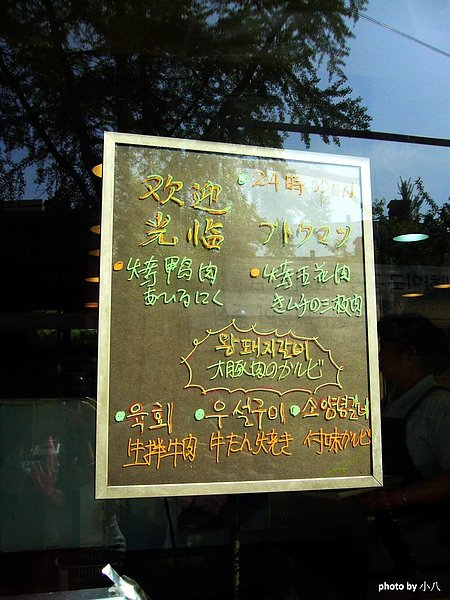 欢迎
24時 OPEN
光临
プトウマツ
烤鸭肉
烤五花肉
あひるにく
왕돼지갈비
大豚肉のカルビ
육회
우설구이
소양념갈비
生拌牛肉
牛たん焼き
付味カルビ
photo by 小八